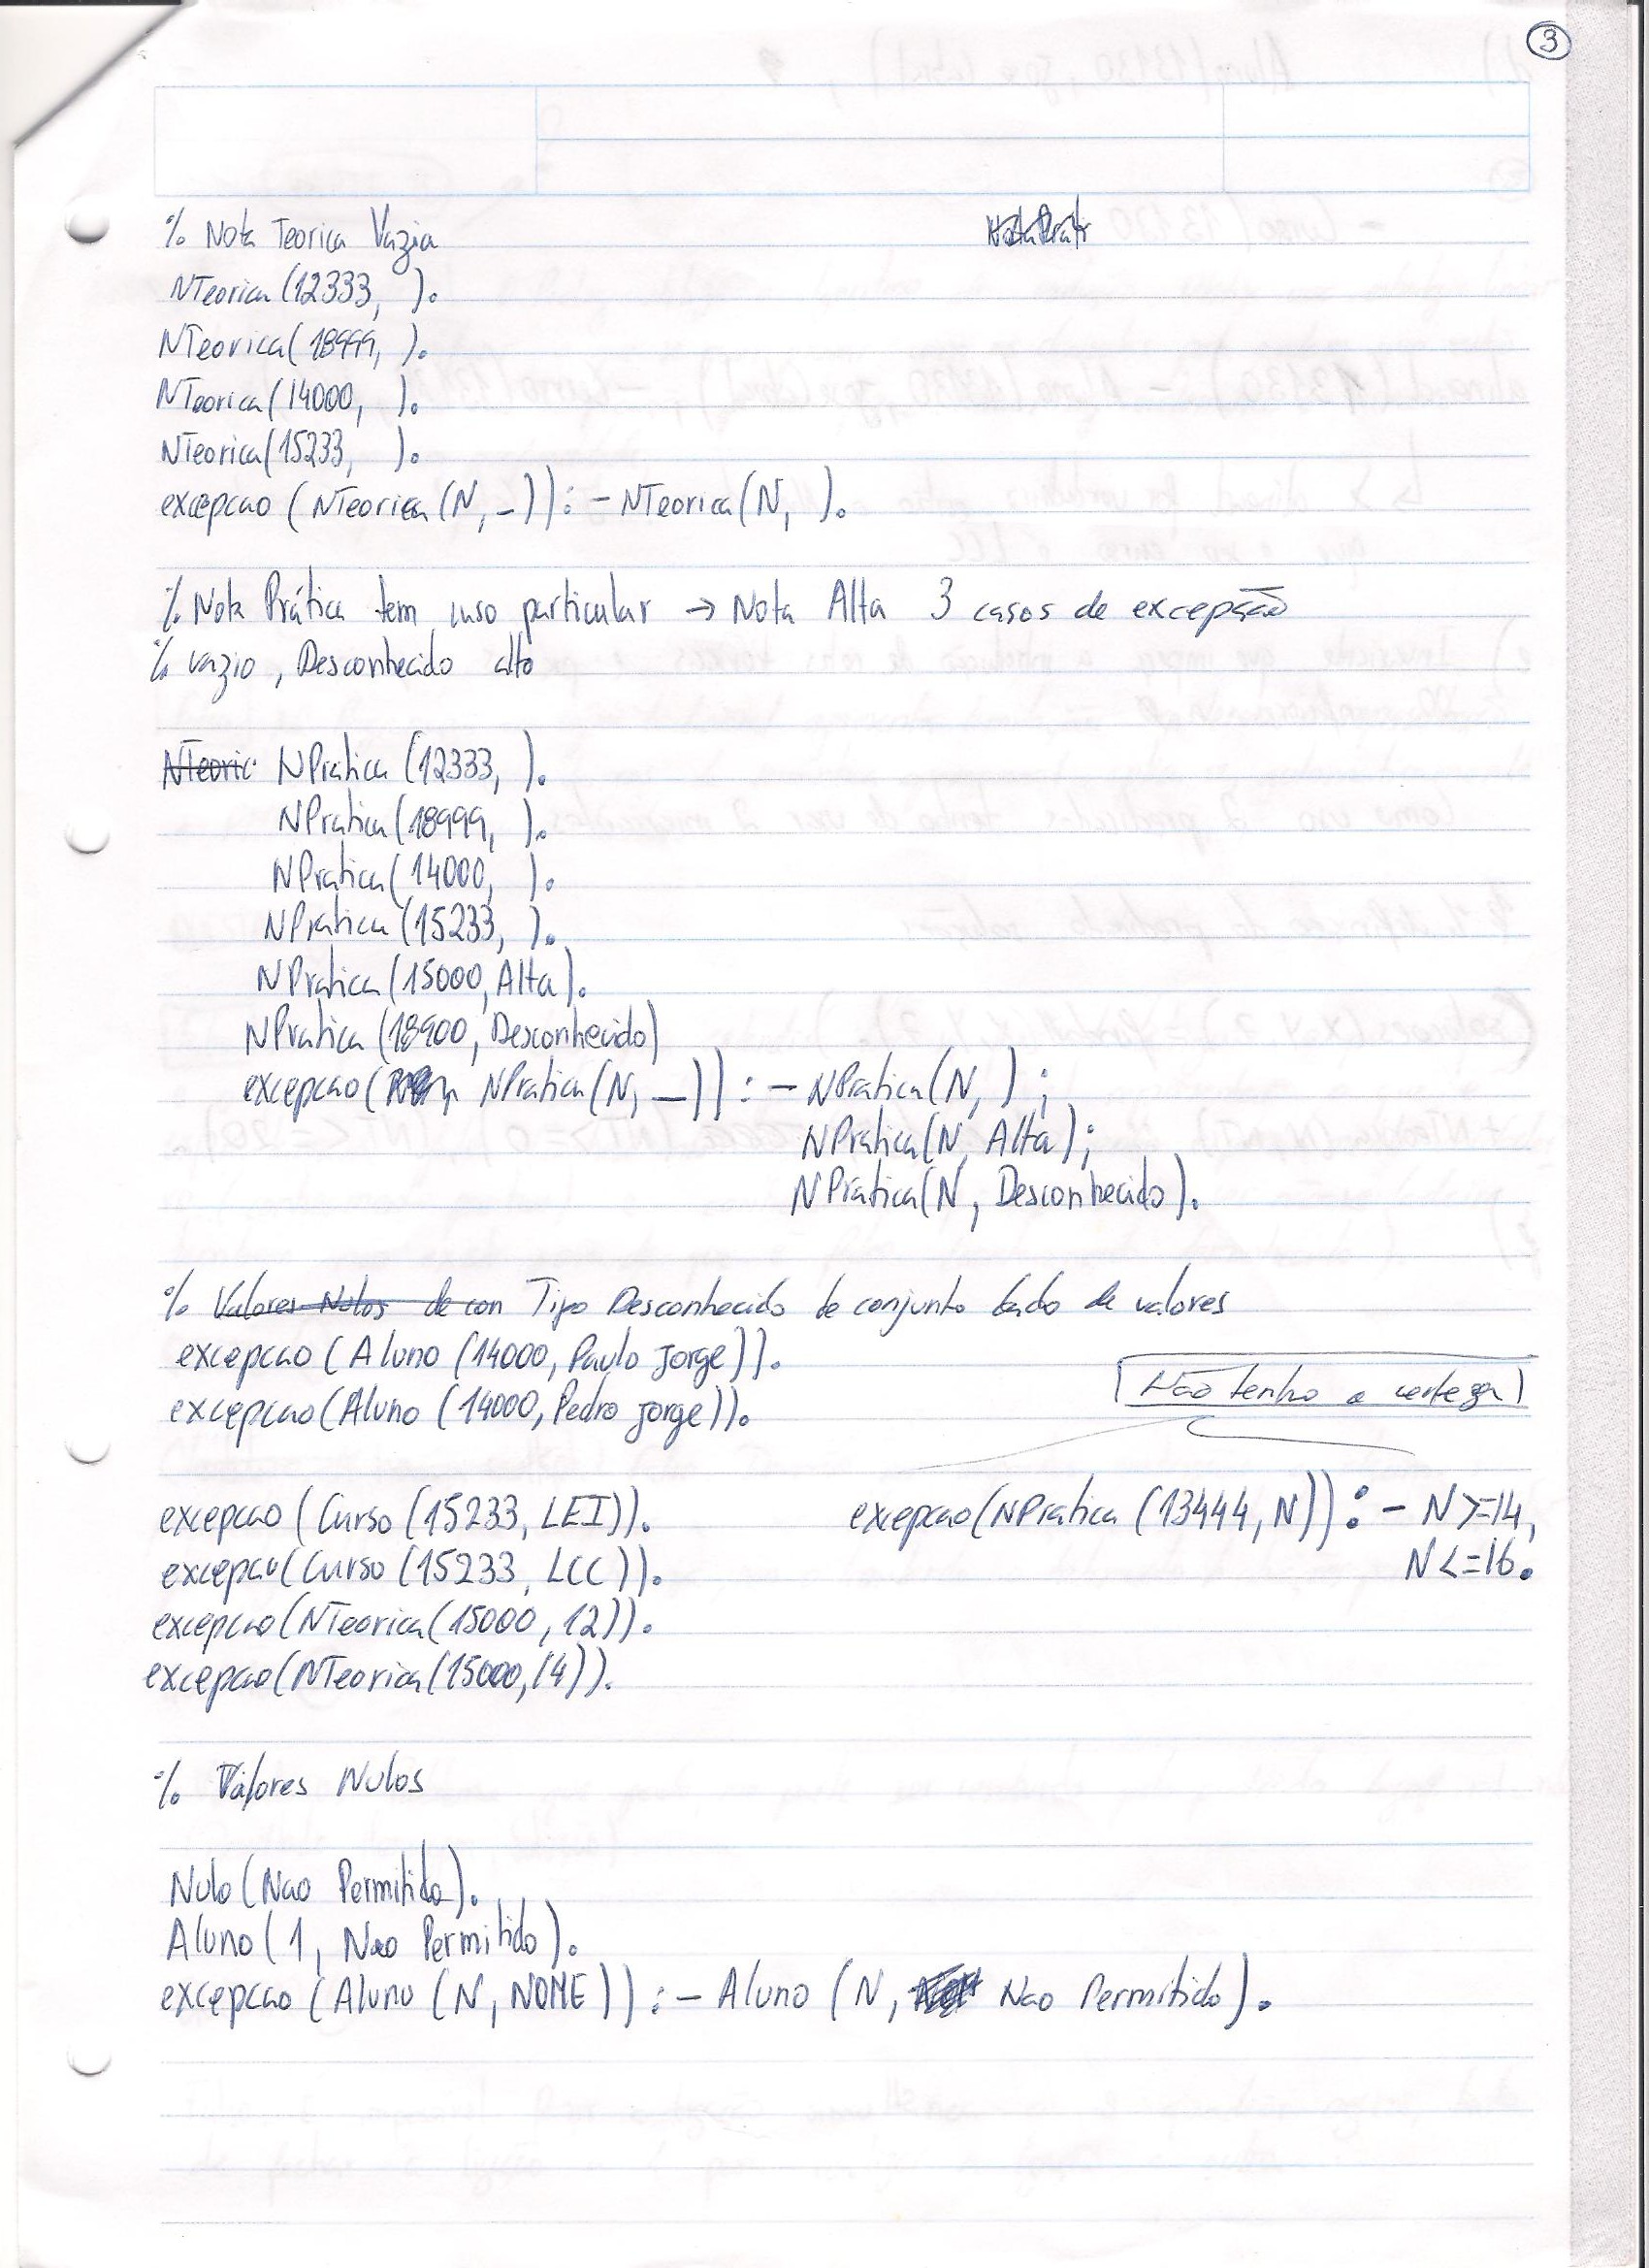 3
% Nota Teorica Vazia
NTeorica (12333, ).
NTeorica (18999, ).
NTeorica (14000, ).
NTeorica (15233, ).
excepcao (NTeorica (N, _)) :- NTeorica (N, ).
% Nota Prática tem caso particular → Nota Alta 3 casos de excepção
% vazio, Desconhecido alto
NTeoric NPratica (12333, ).
NPratica (18999, ).
NPratica (14000, ).
NPratica (15233, ).
NPratica (15000, Alta).
NPratica (18900, Desconhecido)
excepcao ( NPratica (N, _)) :- NPratica (N, ) ;
NPratica (N, Alta) ;
NPratica (N, Desconhecido).
% Valores Nulos de con Tipo Desconhecido de conjunto dado de valores
excepcao (Aluno (14000, Paulo Jorge)).
excepcao (Aluno (14000, Pedro Jorge)).
Não tenho a certeza
excepcao (Curso (15233, LEI)). excepcao (NPratica (13444, N)) :- N >=14,
excepcao (Curso (15233, LCC)). N <=16.
excepcao (NTeorica (15000, 12)).
excepcao (NTeorica (15000, 14)).
% Valores Nulos
Nulo (Nao Permitido).
Aluno (1, Nao Permitido).
excepcao (Aluno (N, NOME)) :- Aluno (N, Nao Permitido).